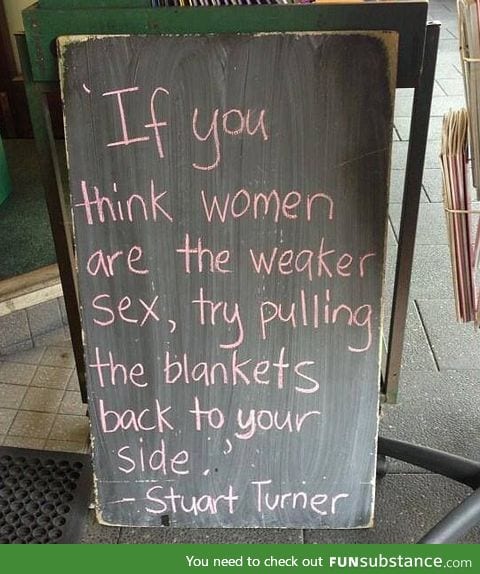 'If you
think women
are the weaker
sex, try pulling
the blankets
back to your
side.'
- Stuart Turner
You need to check out FUNsubstance.com